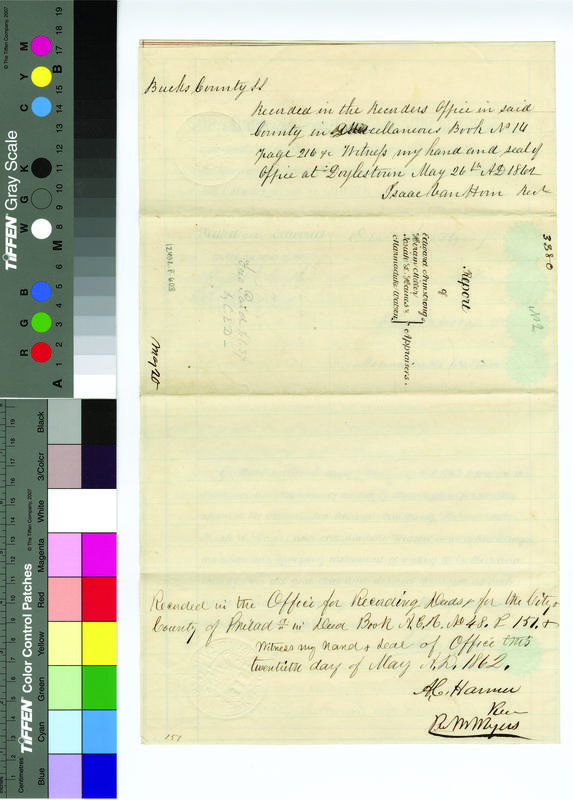 Bucks County SS
Recorded in the Recorders Office in said
County in Miscellaneous Book No 14
Page 216 &c Witness my hand and seal of
Office at Doylestown May 26th AD 1862
Isaac VanHorn Rec
3380
No 2
Report
of
Edward Armstrong
Hiram Miller
Josiah S. Haines &
Marmaduke Watson
Appraisers.
May 20
Recorded in the Office for Recording Deeds & for the City &
County of Philad a in Deed Book A.C.H. No 48. P 151. &
Witness my Hand & Seal of Office this
twentieth day of May A.D. 1862.
A.C. Harmer
Rec
R M Myers
151
TIFFEN Gray Scale
© The Tiffen Company, 2007
R G B W G K C Y M
A 1 2 3 4 5 6 M 8 9 10 11 12 13 14 15 B 17 18 19
TIFFEN Color Control Patches
© The Tiffen Company, 2007
Centimetres
Blue Cyan Green Yellow Red Magenta White 3/Color Black